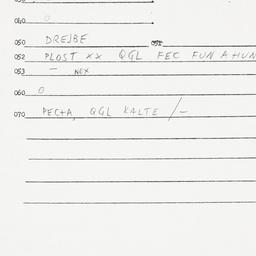 040 0
050 DREJBE
052 PLOST XX QGL FEC FUN AHUN
053 — NOX
060 0
070 PECTA, QGL KALTE /—